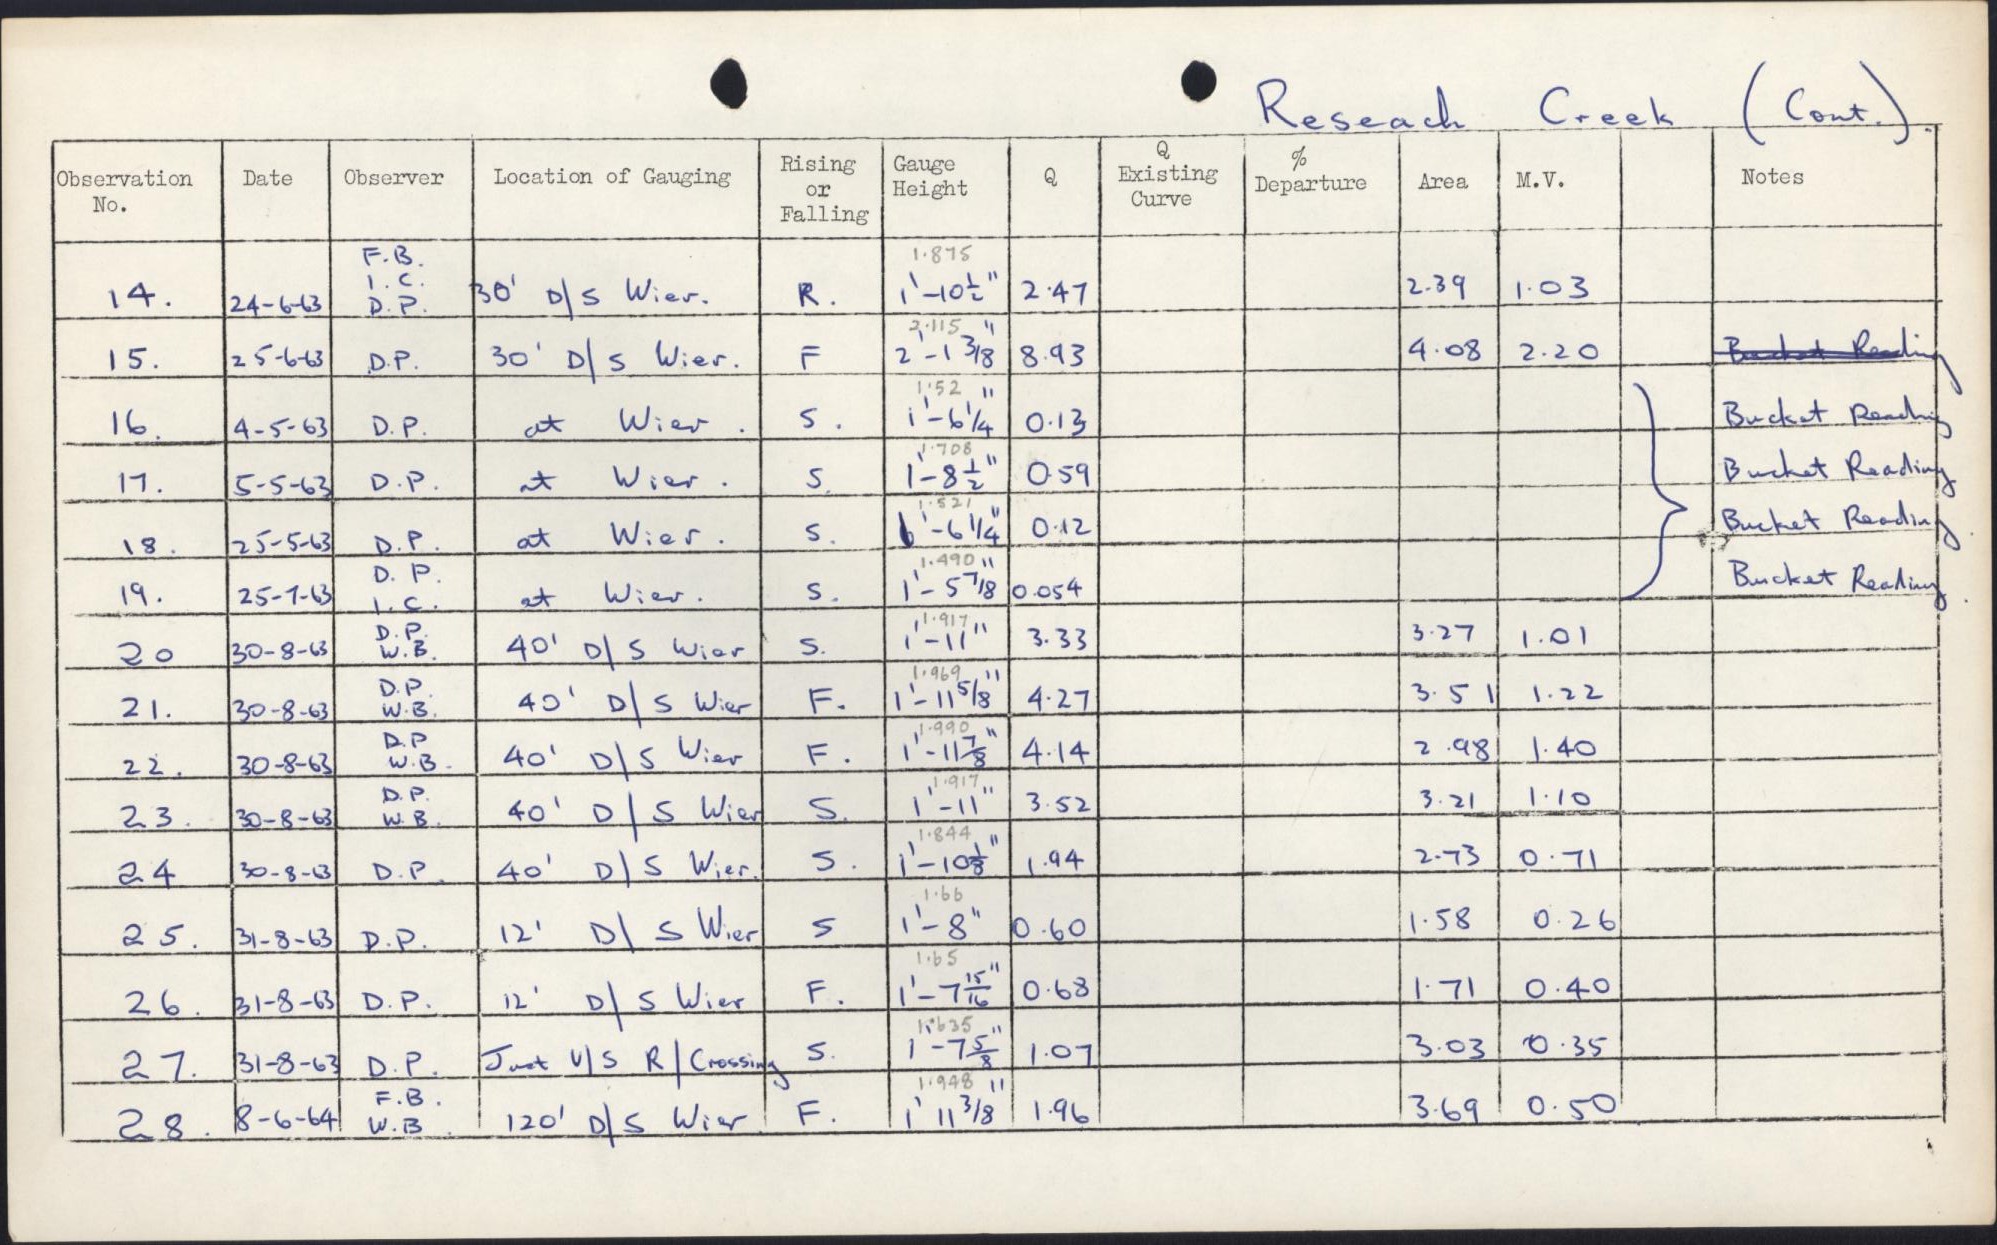 Reseach Creek (Cont.).
Observation No. Date Observer Location of Gauging Rising or Falling Gauge Height Q Q Existing Curve % Departure Area M.V. Notes
14. 24-6-63 F.B. I.C. D.P. 30' D/S Wier. R. 1.875 1'-10½" 2.47 2.39 1.03
15. 25-6-63 D.P. 30' D/S Wier. F 2.115 2'-1 3/8" 8.93 4.08 2.20 Bucket Reading
16. 4-5-63 D.P. at Wier. S. 1.52 1'-6 1/4" 0.13 Bucket Reading
17. 5-5-63 D.P. at Wier. S. 1.708 1'-8½" 0.59 Bucket Reading
18. 25-5-63 D.P. at Wier. S. 1.521 1'-6 1/4" 0.12 Bucket Reading
19. 25-7-63 D.P. I.C. at Wier. S. 1.490 1'-5 7/8" 0.054 Bucket Reading
20 30-8-63 D.P. W.B. 40' D/S Wier S. 1.917 1'-11" 3.33 3.27 1.01
21. 30-8-63 D.P. W.B. 40' D/S Wier F. 1.969 1'-11 5/8" 4.27 3.51 1.22
22. 30-8-63 D.P W.B. 40' D/S Wier F. 1.990 1'-11 7/8" 4.14 2.98 1.40
23. 30-8-63 D.P. W.B. 40' D/S Wier S. 1.917 1'-11" 3.52 3.21 1.10
24 30-8-63 D.P. 40' D/S Wier. S. 1.844 1'-10 1/8" 1.94 2.73 0.71
25. 31-8-63 D.P. 12' D/S Wier S 1.66 1'-8" 0.60 1.58 0.26
26. 31-8-63 D.P. 12' D/S Wier F. 1.65 1'-7 15/16" 0.68 1.71 0.40
27. 31-8-63 D.P. Just U/S R/Crossing S. 1.635 1'-7 5/8" 1.07 3.03 0.35
28. 8-6-64 F.B. W.B. 120' D/S Wier F. 1.948 1' 11 3/8" 1.96 3.69 0.50